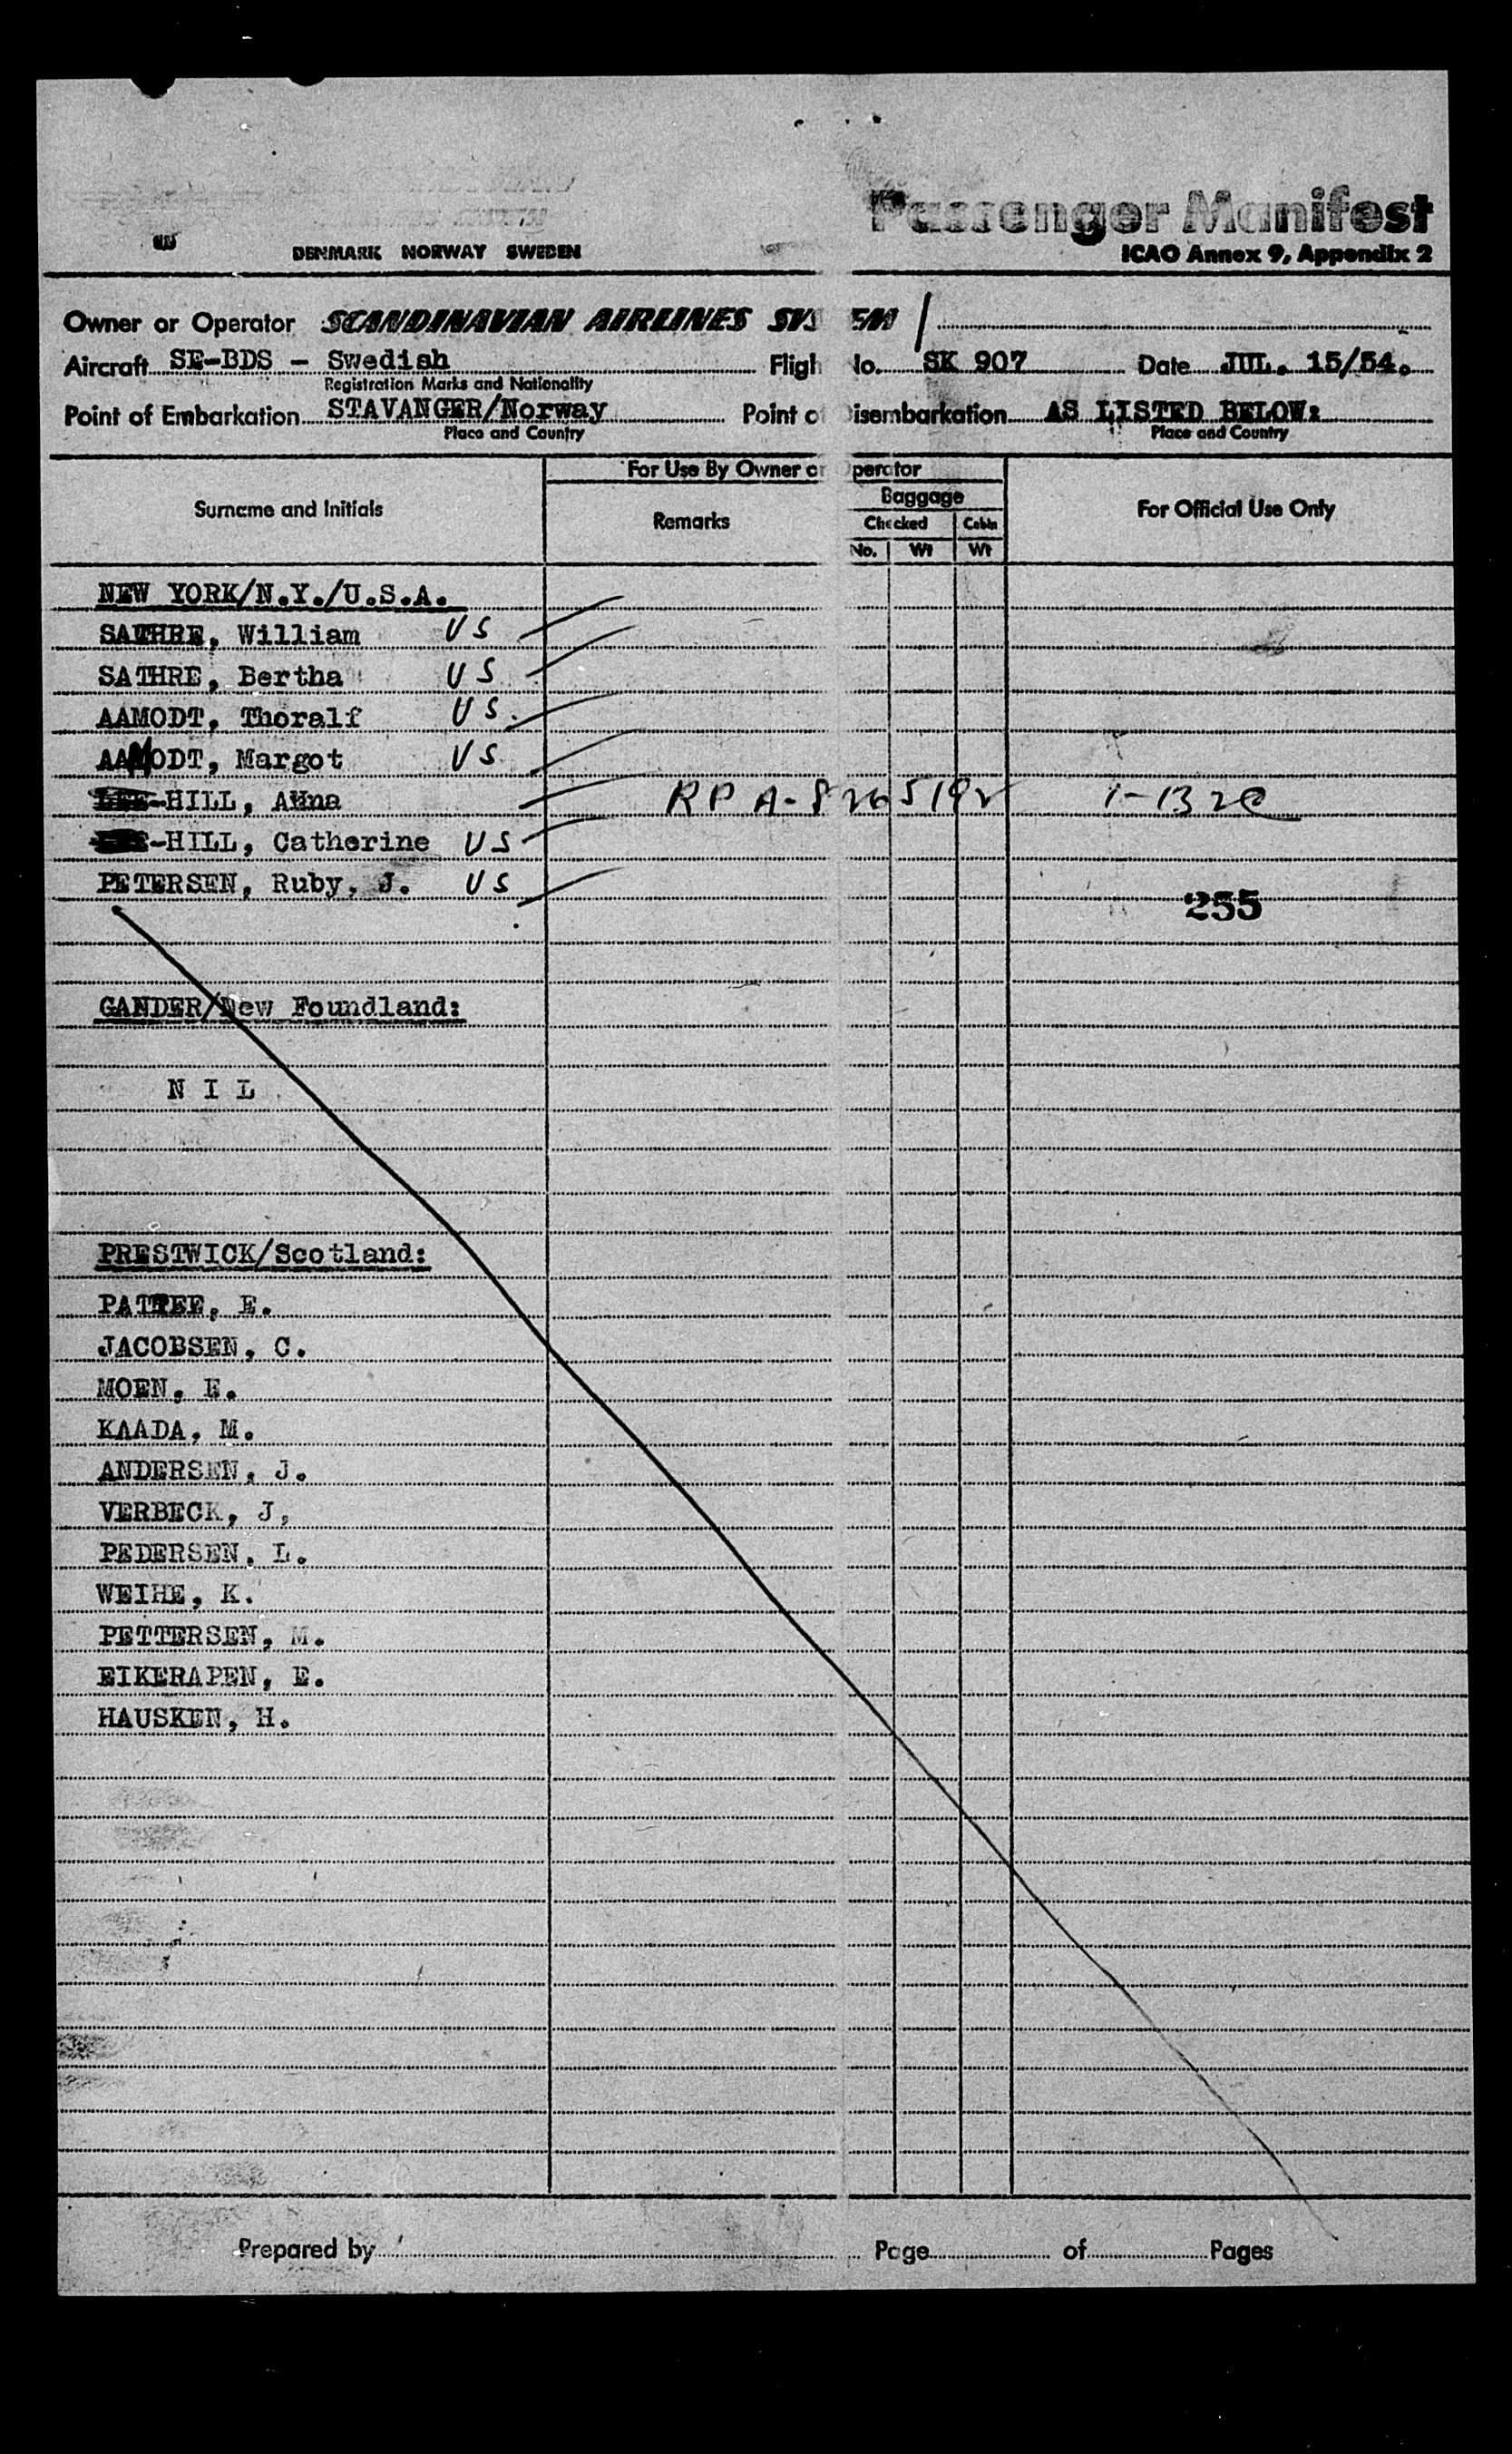 Passenger Manifest
DENMARK NORWAY SWEDEN
ICAO Annex 9, Appendix 2
Owner or Operator SCANDINAVIAN AIRLINES SYS EM
Aircraft SE-BDS - Swedish Fligh No. SK 907 Date JUL. 15/54.
Registration Marks and Nationality
Point of Embarkation STAVANGER/Norway Point o Disembarkation AS LISTED BELOW:
Place and Country Place and Country
For Use By Owner or Operator
Surname and Initials Remarks Baggage For Official Use Only
Checked Cabin
No. Wt Wt
NEW YORK/N.Y./U.S.A.
SATHRE, William US
SATHRE, Bertha US
AAMODT, Thoralf US.
AAMODT, Margot US
HILL, Anna RP A-8265192
-HILL, Catherine US
PETERSEN, Ruby, J. US
255
GANDER/New Foundland:
N I L
PRESTWICK/Scotland:
PATTEE, E.
JACOBSEN, C.
MOEN, E.
KAADA, M.
ANDERSEN, J.
VERBECK, J,
PEDERSEN, L.
WEIHE, K.
PETTERSEN, M.
EIKERAPEN, E.
HAUSKEN, H.
Prepared by Page of Pages